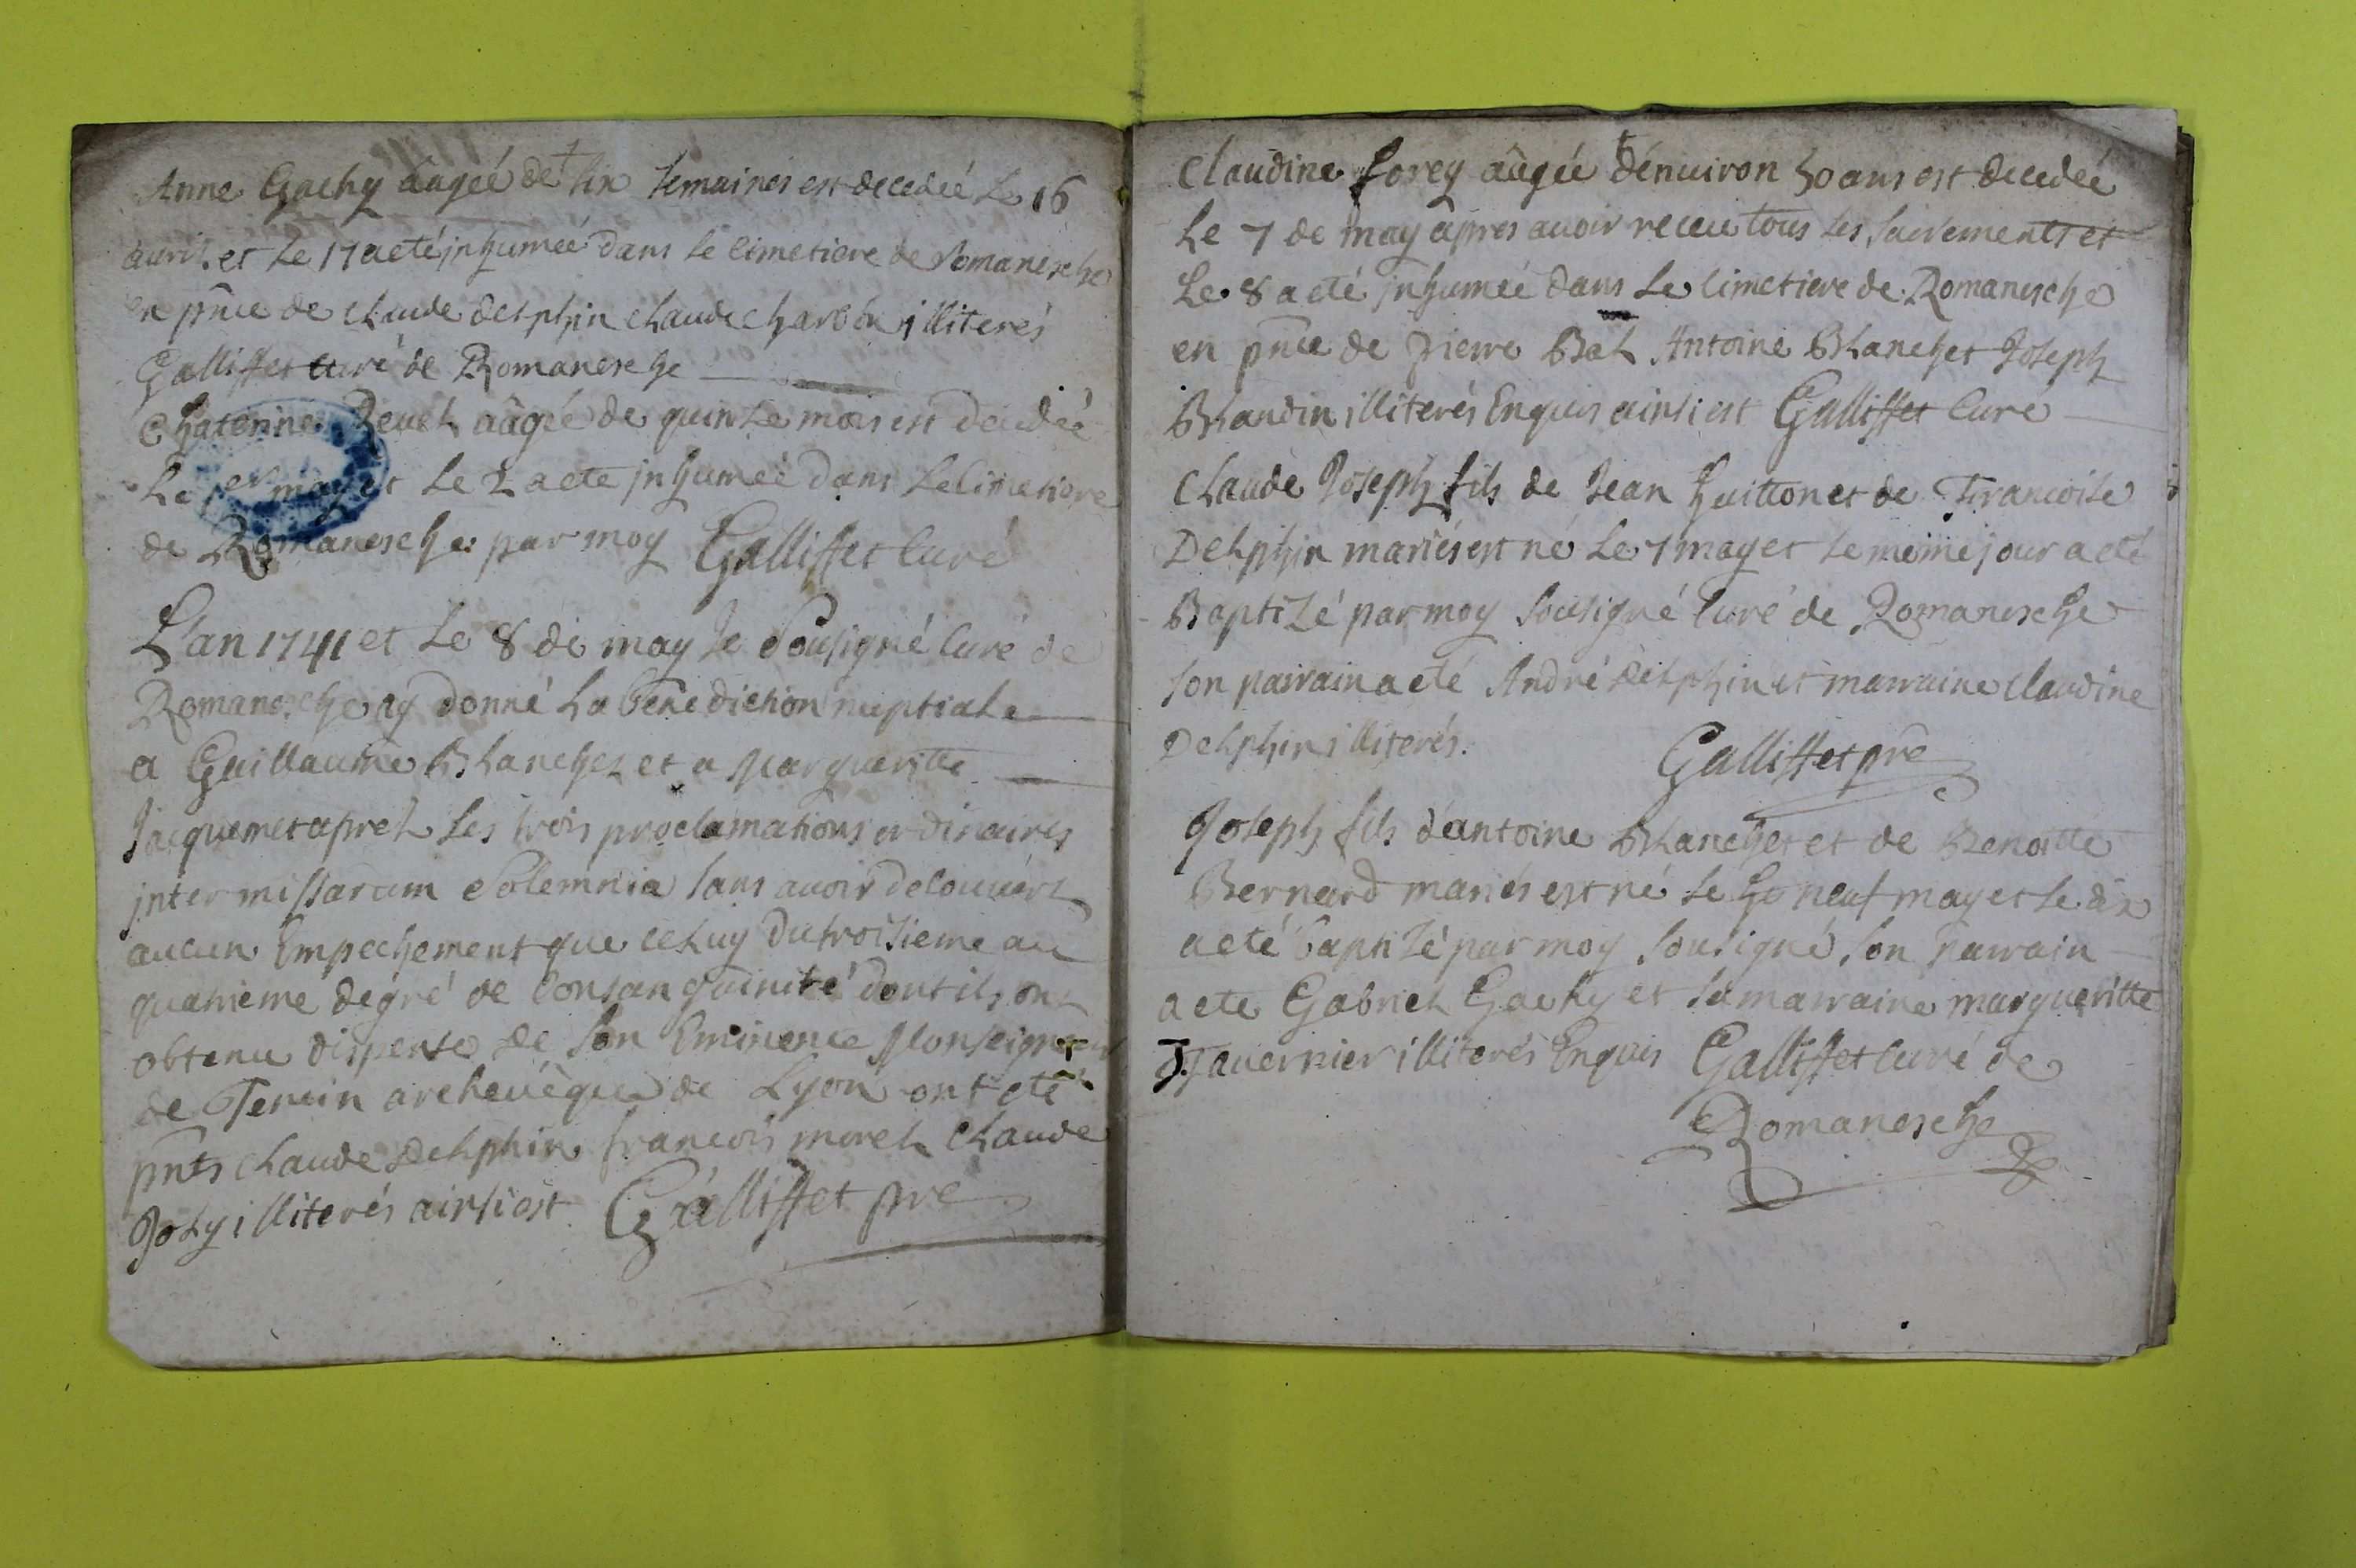 Anne Gachy âagéé de six semaines est decedéé le 16
avril et le 17 a eté jnhumeé dans le cimetiere de Romanesche
en pnce de claude delphin claude charbon illiterés
Galliffet curé de Romanesche
Chaterine Revel aâgée de quinze mois est decedéé
Le 1er may et le 2 a ete jnhumeé dans le cimetiere
de Romanesche par moy Galliffet curé
L'an 1741 et le 8 de may Je sousigné curé de
Romanesche ay donné la benediction nuptiale
a Guillaume Blanchet et a Margueritte
Jacquemet apret les trois proclamations ordinaires
jnter missarum solemnia sans avoir decouvert
aucun Empechement que celuy du troisieme au
quatrieme degré de consanguinité dont ils ont
obtenu dispense de son Eminence Monseigneur
de Tencin archevêque de Lyon ont eté
pnts claude delphin francois morel claude
Joly illiterés ainsi est. Galliffet pre
Claudine Lorey aâgée d'enuiron 50 ans est decedeé
Le 7 de may apres avoir receu tous les sacrements et
Le 8 a eté jnhumeé dans le cimetiere de Romanesche
en pnce de pierre Bal Antoine Blanchet Joseph
Blandin illiterés Enquis ainsi est Galliffet curé
Claude Joseph fils de Jean Guitton et de Francoise
Delphin mariés est né le 7 may et le même jour a eté
Baptizé par moy sousigné curé de Romanesche
son parrain a eté André delphin et marraine claudine
Delphin illiterés.
Galliffet pre
Joseph fils d'antoine Blanchet et de Benoitte
Bernard mariés est né le neuf may et le dix
a eté baptizé par moy sousigné son parrain
a ete Gabriel Gachy et sa marraine margueritte
Tavernier illiterés Enquis Galliffet curé de
Romanesche